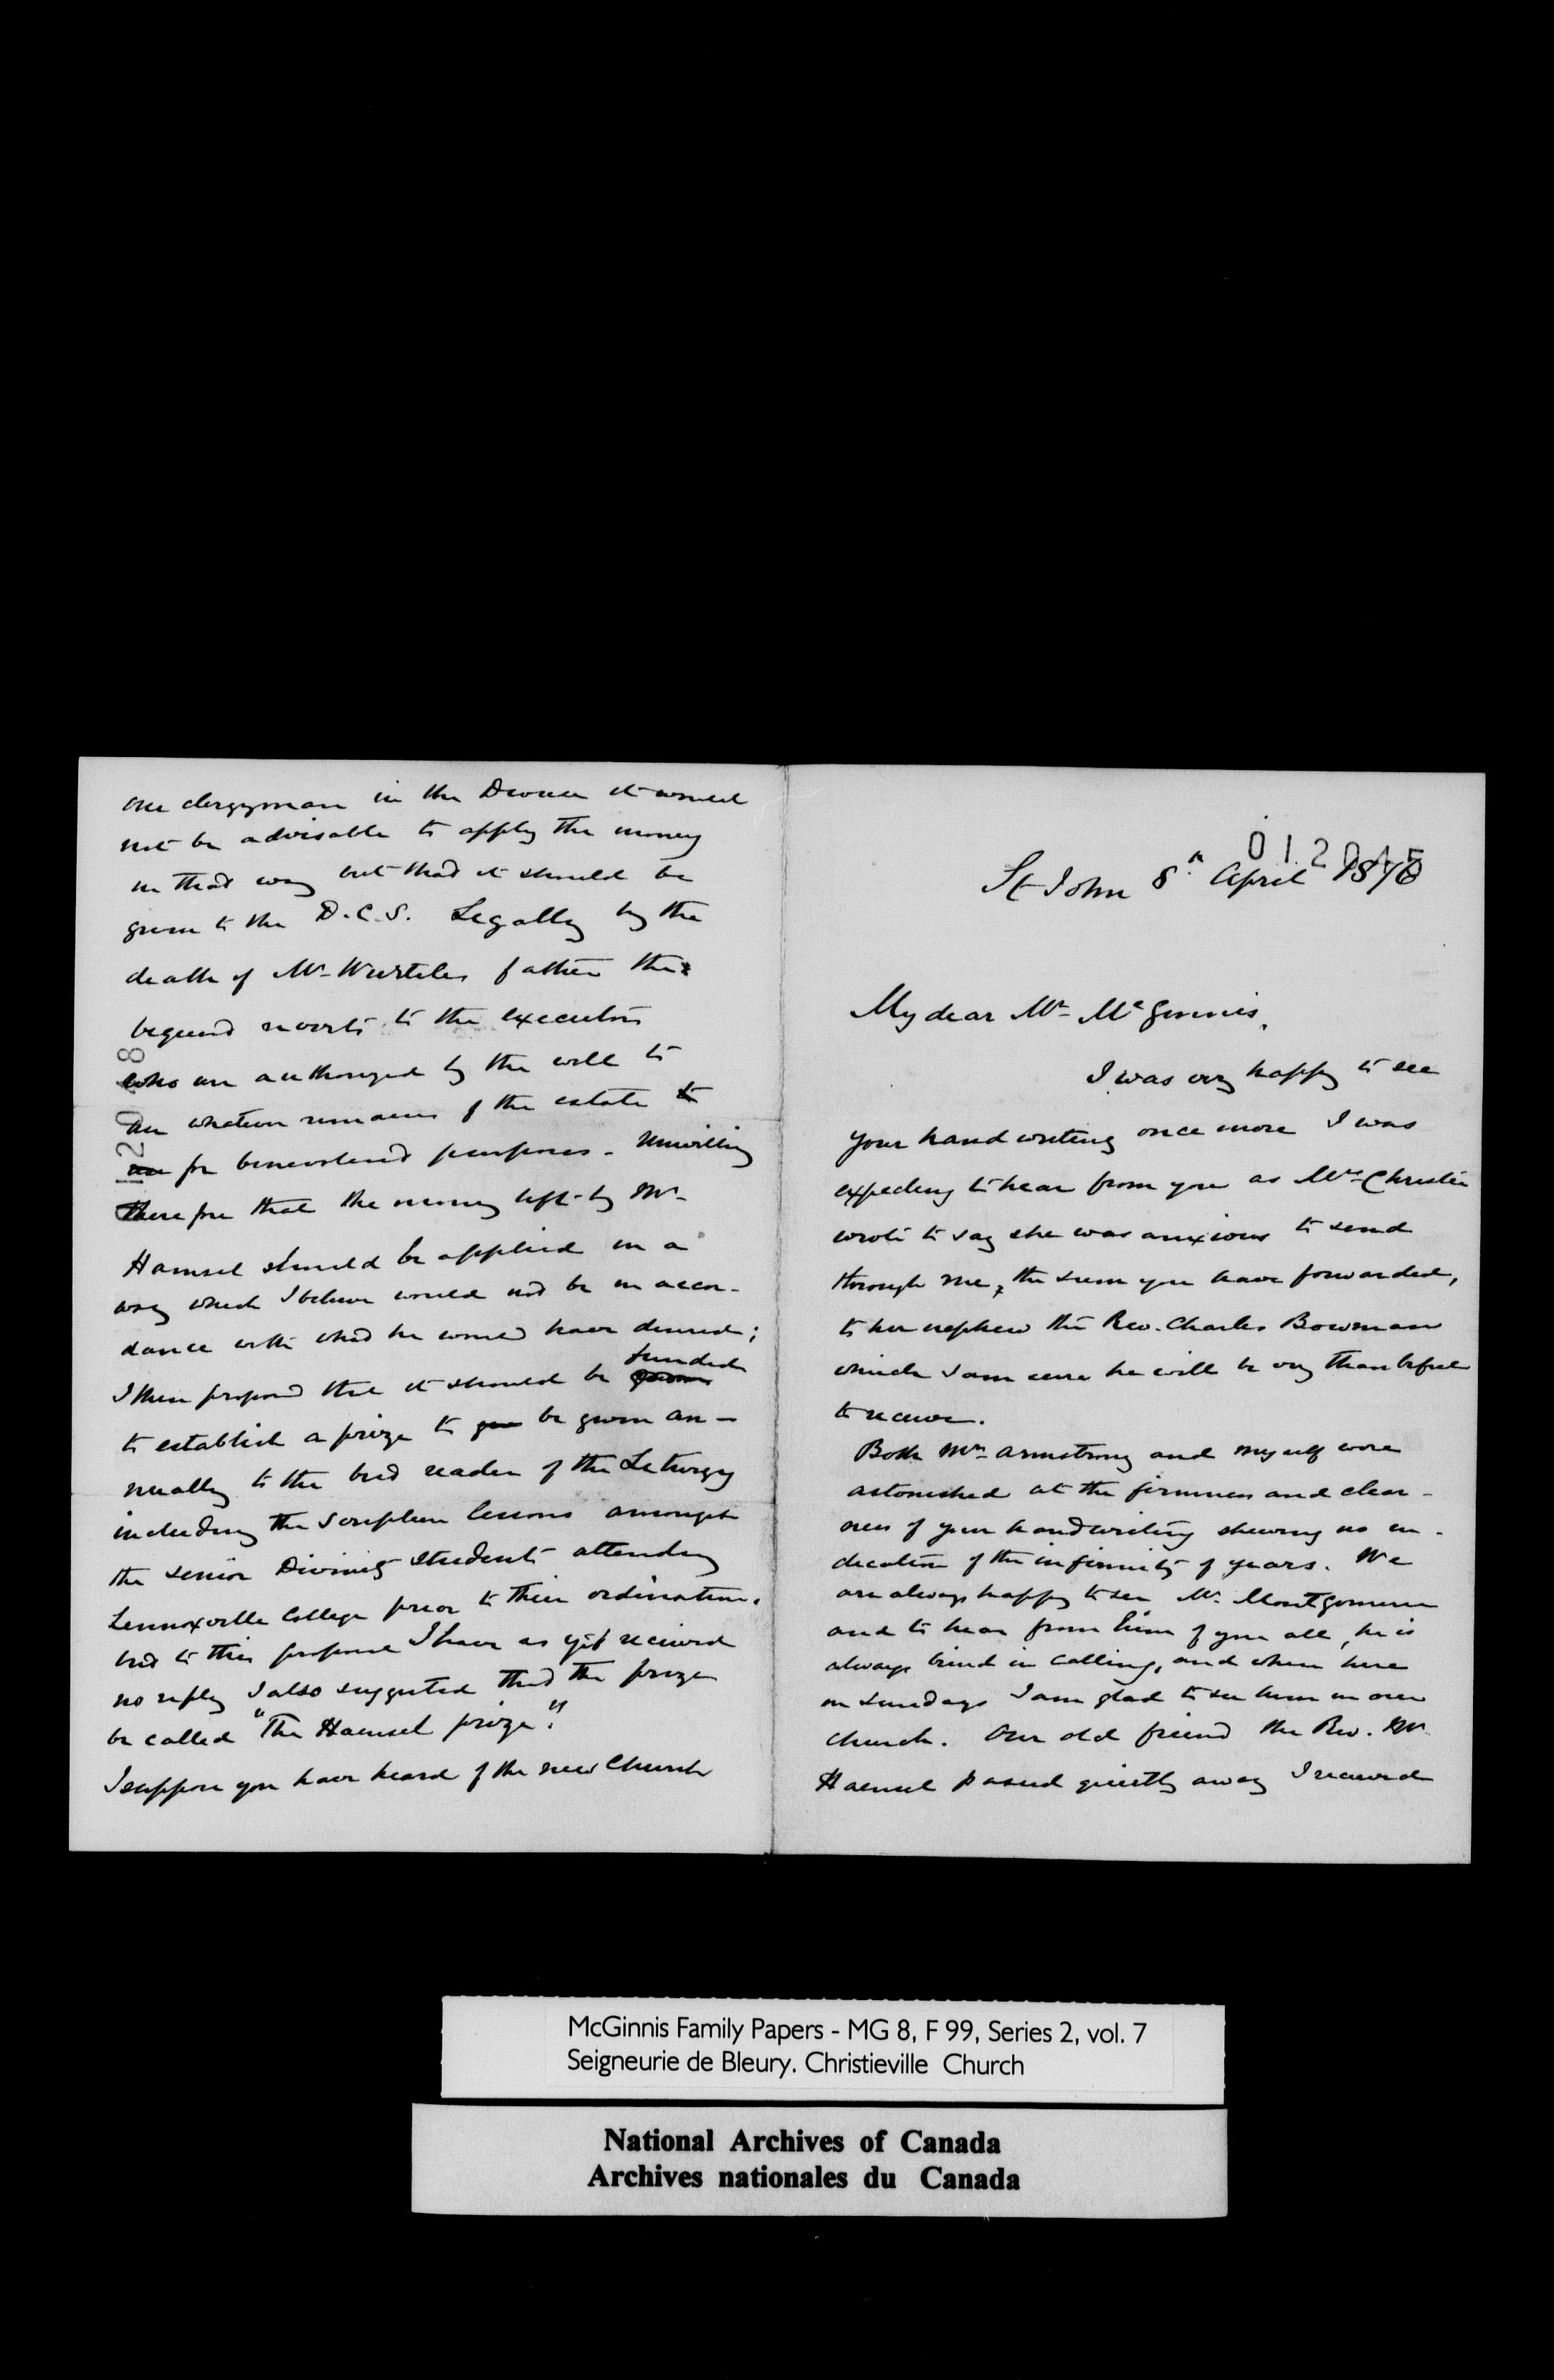 one clergyman in the Diocese it would
not be advisable to apply the money
in that way but that it should be
given to the D.C.S. Legally by the
death of Mr Wurteles father the
bequest reverts to the executors
who are authorized by the will to
use whatever remains of the estate to
use for benevolent purposes - Unwilling
therefore that the money left by Mr
Haensel should be applied in a
way which I believe would not be in accor-
dance with what he would have desired;
I then proposed that it should be funded
to establish a prize to be given an-
nually to the best reader of the Liturgy
including the Scripture lessons amongst
the senior Divinity Students attending
Lennoxville College prior to their ordination.
but to this proposal I have as yet received
no reply I also suggested that the prize
be called "The Haensel prize."
I suppose you have heard of the new Church
St John 8th April
My dear Mr McGinnis,
I was very happy to see
your handwriting once more I was
expecting to hear from you as Mrs Christie
wrote to say she was anxious to send
through me, the sum you have forwarded,
to her nephew the Rev. Charles Bowman
which I am sure he will be very thankful
to receive.
Both Mrs Armstrong and myself were
astonished at the firmness and clear-
ness of your handwriting shewing no in-
dication of the infirmity of years. We
are always happy to see Mr. Montgomerie
and to hear from him of you all, he is
always kind in calling, and when here
on Sundays I am glad to see him in our
church. Our old friend the Rev. Mr
Haensel passed quietly away I received
McGinnis Family Papers - MG 8, F 99, Series 2, vol. 7
Seigneurie de Bleury. Christieville Church
National Archives of Canada
Archives nationales du Canada